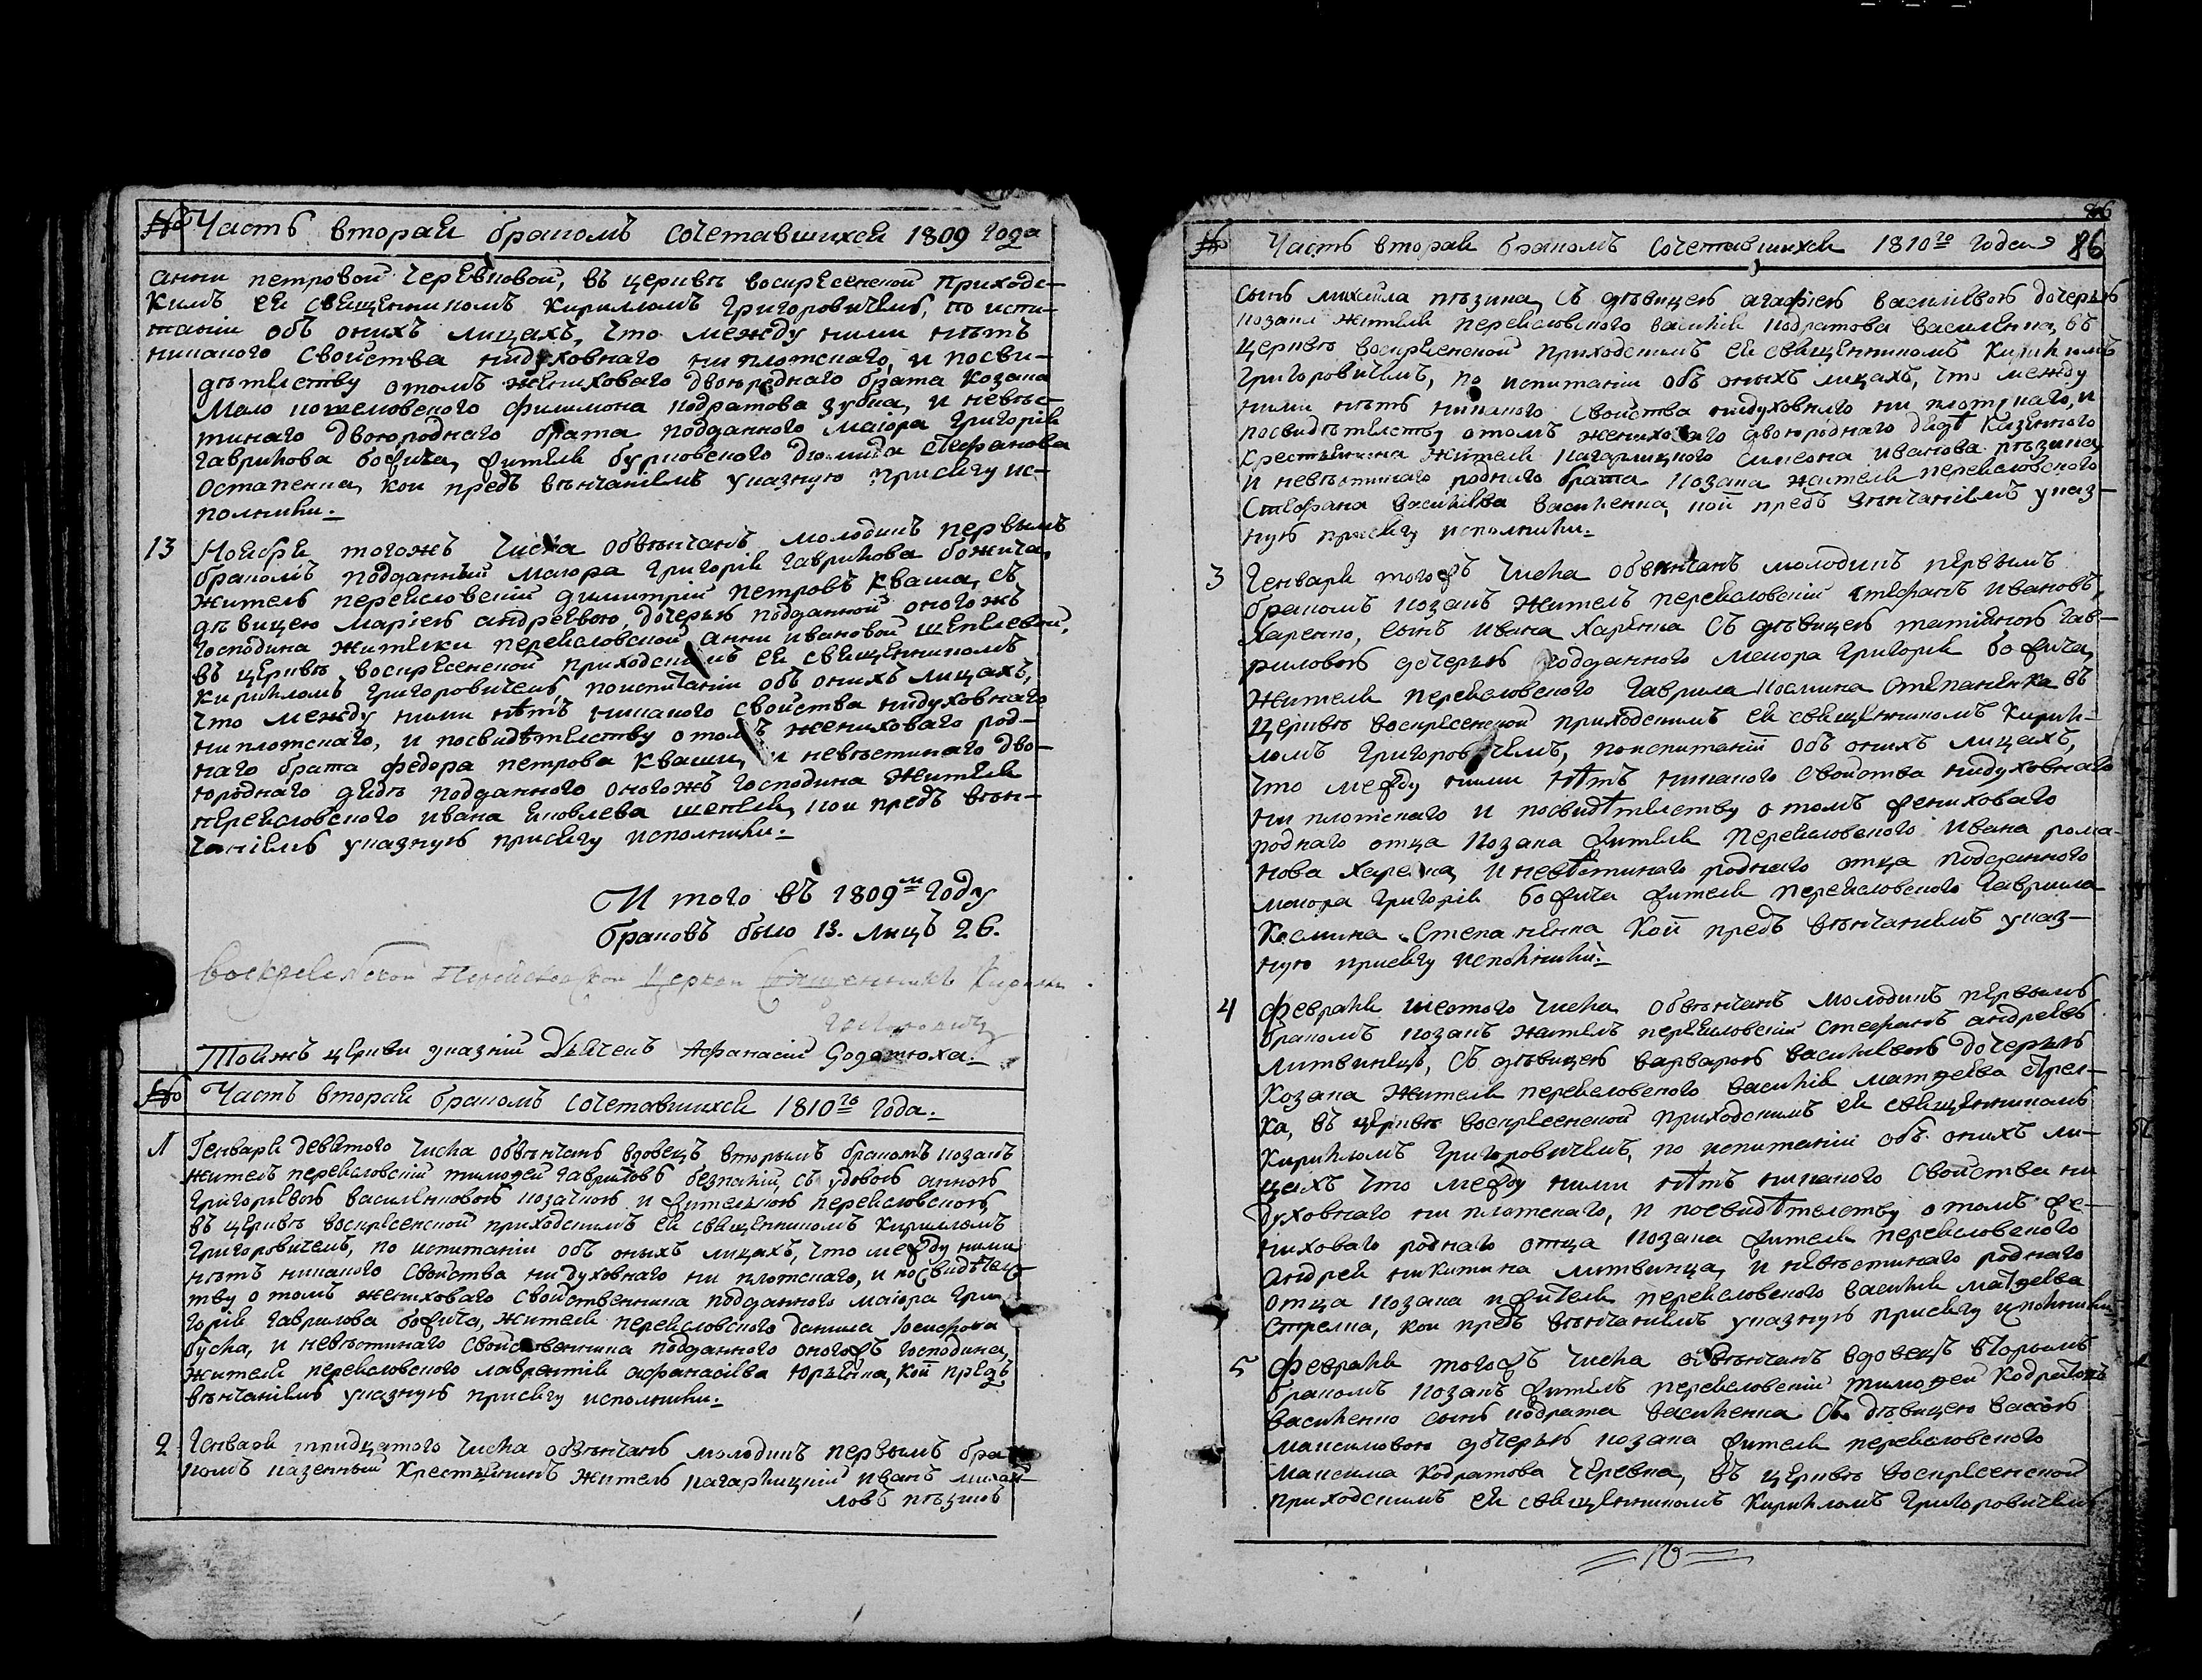 № Часть вторая бракомъ сочетавшихся 1809 года
анни петровой черевковой, въ церквѣ воскресенской приходс-
кимъ ея священникомъ кирилломъ григоровичемъ, по испи-
танїи объ онихъ лицахъ, что между ними нѣтъ
никакого свойства нидуховнаго ни плотскаго, и посви-
дѣтелству отомъ женихового двоюроднаго брата козака
филимона кодратова зубка, и невѣс-
тинаго двоюроднаго брата подданного маіора григорія
гаврилова божича, жителя бурковского стефанова
остапенка, кои предъ вѣнчаніемъ указную присягу ис-
полнили.
13 Ноября тогожъ числа обвѣнчанъ молодикъ первымъ
бракомъ подданный маіора григорія гаврилова божича,
житель переясловскій димитрій петровъ кваша, съ
дѣвицею маріею андреевою, дочерью подданной оногожъ
господина жителки переясловской анни ивановой шепелевой,
въ церквѣ воскресенской приходскимъ ея священникомъ
кирилломъ григоровичемъ, поиспитаніи объ онихъ лицахъ,
что между ними нѣтъ никакого свойства нидуховнаго
ни плотскаго, и посвидѣтелству отомъ жениховаго род-
наго брата федора петрова кваши, и невѣстинаго дво-
юроднаго дядѣ подданного оногожъ господина жителя
переясловского ивана яковлева шепеля, кои предъ вѣн-
чаніемъ указную присягу исполнили.
И того въ 1809м году
браковъ было 13. лицъ 26.
воскресенской Переясловской Церкви священникъ Кириллъ
григоровичъ
Тояжъ церкви указній Дьячекъ Афанасий
№ Часть вторая бракомъ сочетавшихся 1810го года.
1 Генваря девятого числа обвѣнчанъ вдовецъ вторымъ бракомъ козакъ
житель переясловскій тимофей гавриловъ безпалій, съ удовою анною
григоріевою василенковою козачкою и жителкою переясловскою,
въ церквѣ воскресенской приходскимъ ея священникомъ кирилломъ
григоровичемъ, по испитаніи объ оныхъ лицахъ, что между ними
нѣтъ никакого свойства нидуховнаго ни плотскаго, и посвидѣтелс-
тву отомъ жениховаго свойственника подданного маіора гри-
горія гаврилова божича, жителя переясловского данила
буска, и невѣстинаго свойственника подданного оногожъ господина,
жителя переясловского лаврентія афанасіева юрченка, кои предъ
вѣнчаніемъ указную присягу исполнили.
2 Генваря тридцатого числа обвѣнчанъ молодикъ первымъ бра-
комъ казенный крестьянинъ житель кагарлицкій иванъ михай-
ловъ пѣзинъ
86
№ Часть вторая бракомъ сочетавшихся 1810го года 86
сынъ михаила пѣзина, съ дѣвицею агафіею василіевою дочерью
козака жителя переясловского василія кодратова василенка, въ
церквѣ воскресенской приходскимъ ея священникомъ кириломъ
григоровичемъ, по испитаніи объ оныхъ лицахъ, что между
ними нѣтъ никакого свойства нидуховнаго ни плотскаго, и
посвидѣтелству отомъ жениховаго двоюроднаго дядѣ казенного
крестьянина жителя кагарлицкого симеона иванова пѣзина,
и невѣстинаго роднаго брата козака жителя переясловского
стефана василіева василенка, кои предъ вѣнчаніемъ указ-
ную присягу исполнили.
3 Генваря тогожъ числа обвѣнчанъ молодикъ первымъ
бракомъ козакъ житель переясловскій стефанъ ивановъ
харенко, сынъ ивана харенка съ дѣвицею татіяною гав-
риловою дочерью подданного маіора григорія божича,
жителя переясловского гаврила космина степаненка въ
церквѣ воскресенской приходскимъ ея священникомъ кирил-
ломъ григоровичемъ, поиспитаніи объ онихъ лицахъ,
что между ними нѣтъ никакого свойства нидуховнаго
ни плотскаго и посвидѣтелству отомъ жениховаго
роднаго отца козака жителя переясловского ивана рома-
нова харенка, и невѣстинаго роднаго отца подданного
маіора григорія божича жителя переясловского гавриила
Космина Степаненка кои предъ вѣнчаніемъ указ-
ную присягу исполнили.
4 февраля шестого числа обвѣнчанъ молодикъ первымъ
бракомъ козакъ житель переясловскій стефанъ андреевъ
литвинецъ, съ дѣвицею варварою василіевою дочерью
козака жителя переясловского василія матфеева стрел-
ка, въ церквѣ воскресенской приходскимъ ея священникомъ
кирилломъ григоровичемъ, по испитаніи объ онихъ ли-
цахъ что между ними нѣтъ никакого свойства ни
духовнаго ни плотскаго, и посвидѣтелству отомъ же-
ниховаго роднаго отца козака жителя переясловского
андрея никитина литвинца, и невѣстинаго роднаго
отца козака жителя переясловского василія матфеева
стрелка, кои предъ вѣнчаніемъ указную присягу исполнили.
5 февраля тогожъ числа обвѣнчанъ вдовецъ вторымъ
бракомъ козакъ житель переясловскій тимофей кодратовъ
василенко сынъ кодрата василенка съ дѣвицею вассою
максимовою дочерью козака жителя переясловского
максима кодратова черевка, въ церквѣ воскресенской
приходскимъ ея священникомъ кирилломъ григоровичемъ